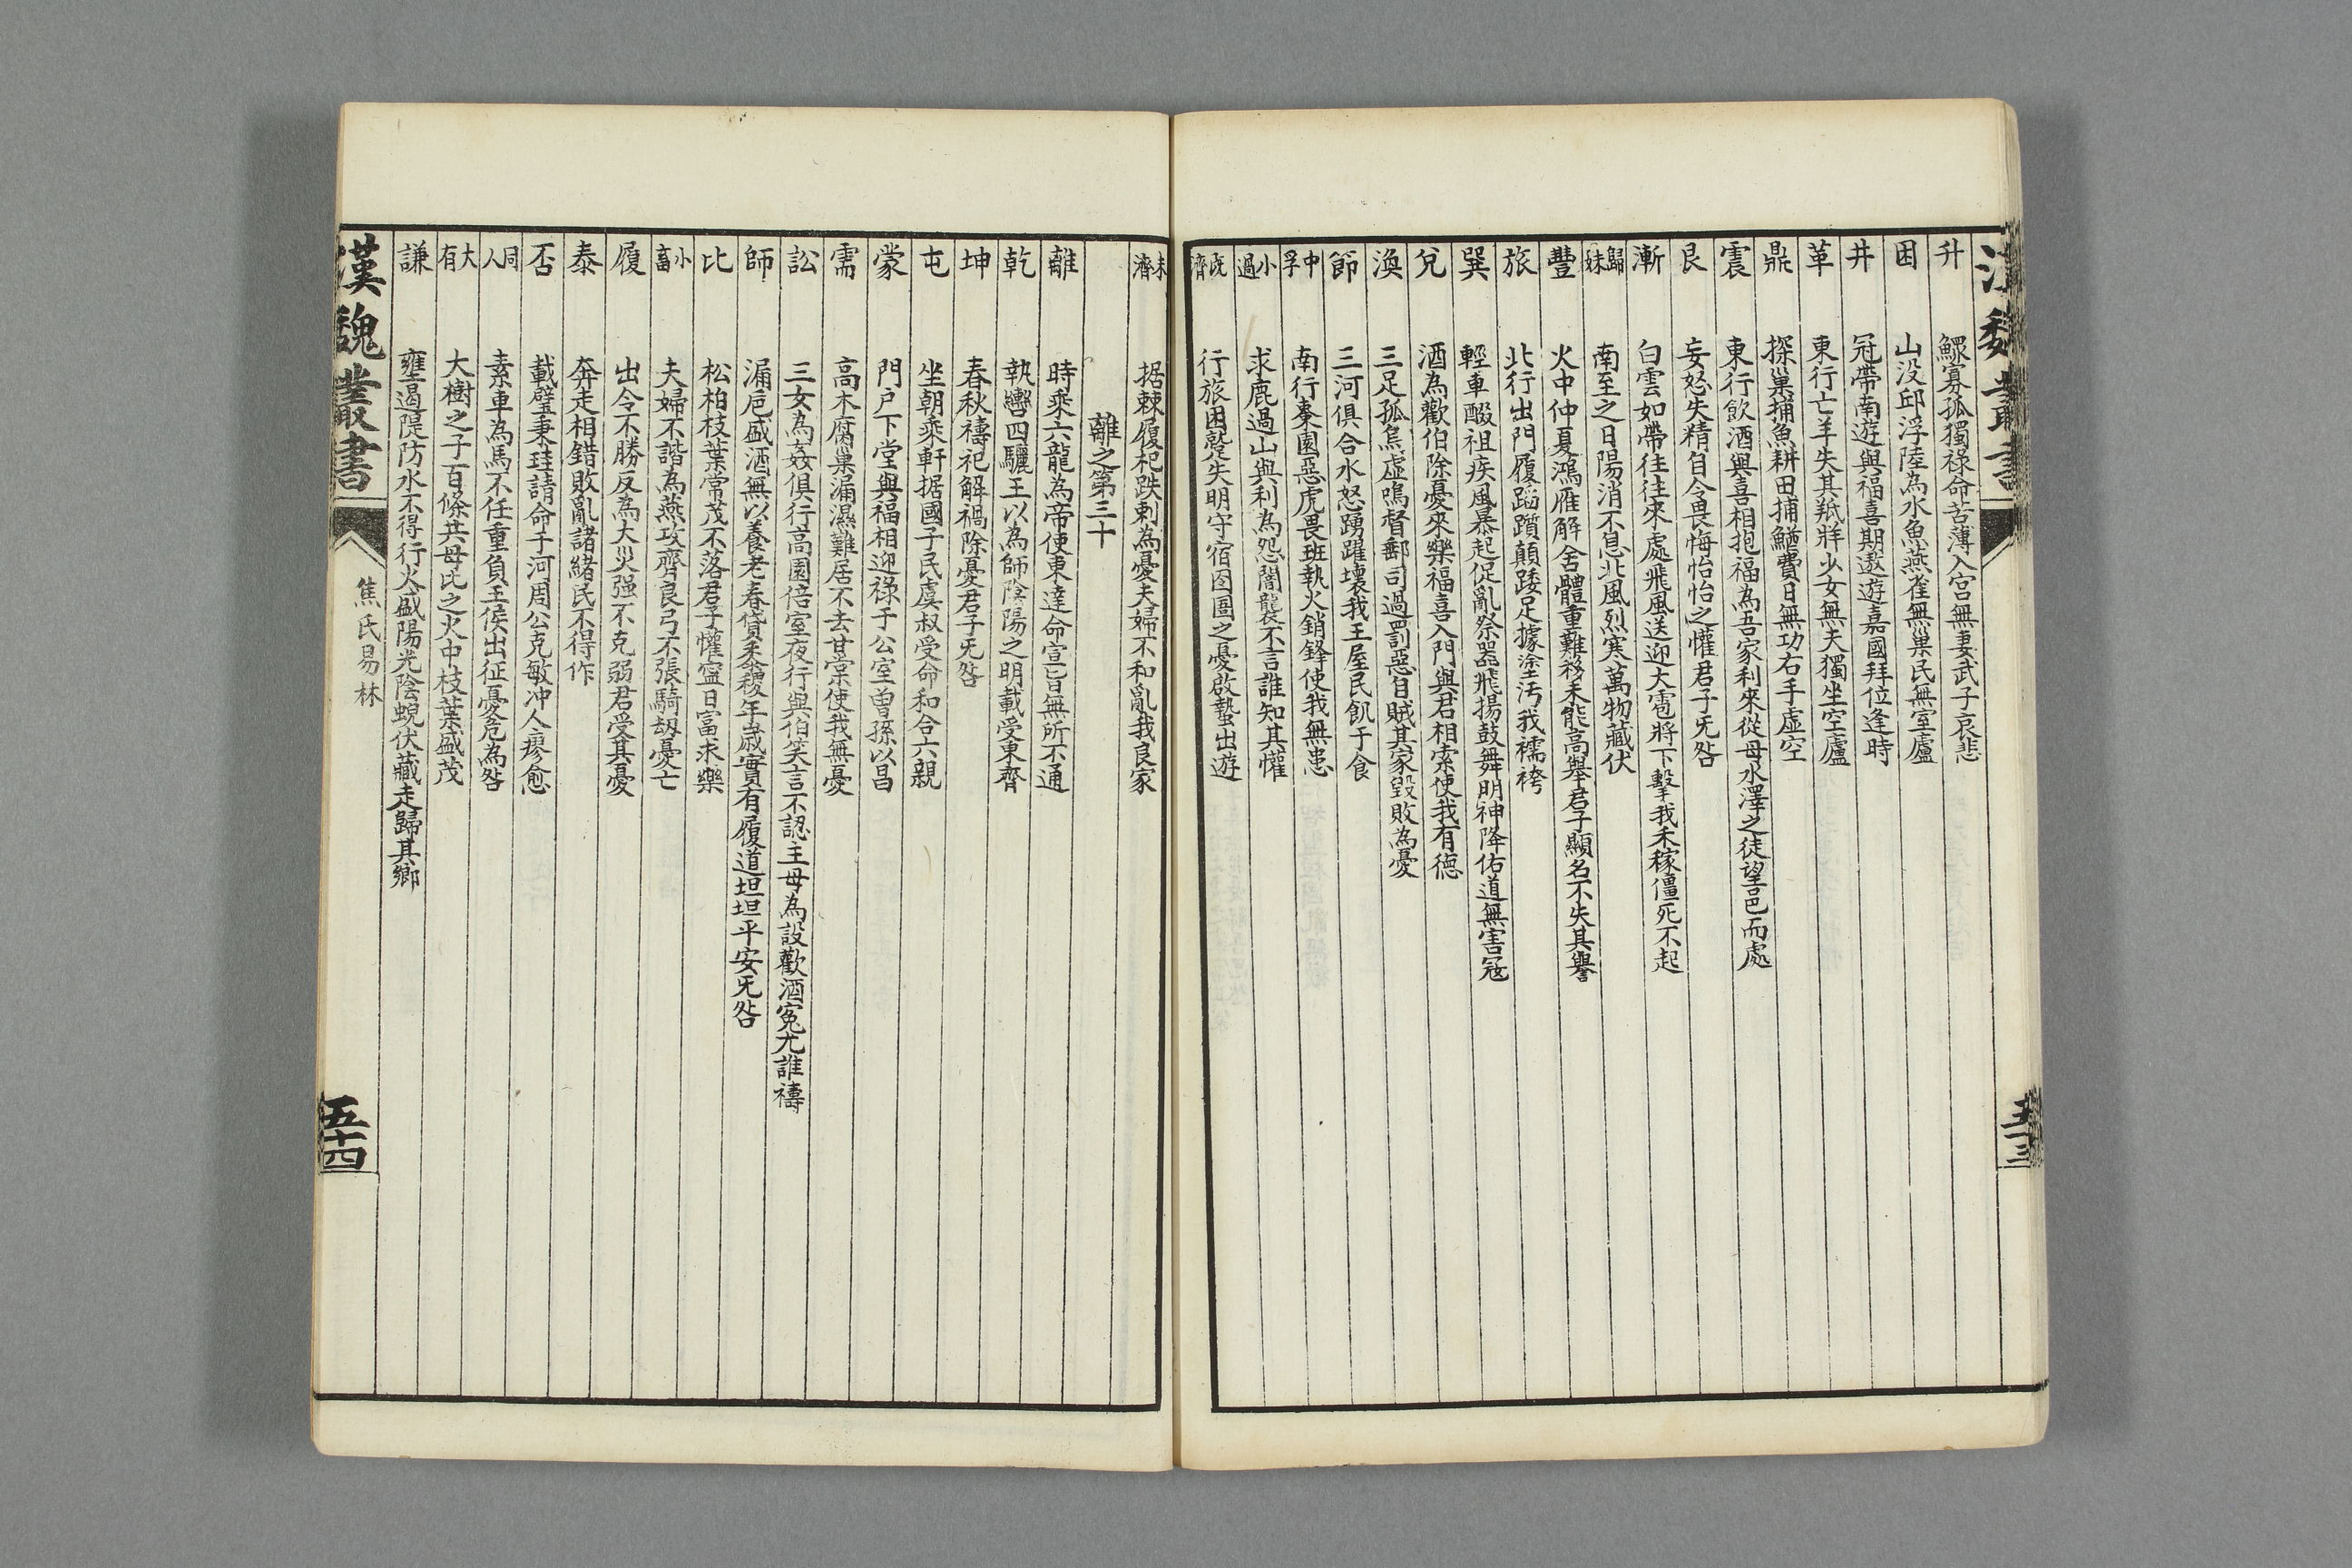 漢魏叢書
升 鰥寡孤獨祿命苦薄入宮無妻武子哀悲
困 山没邱浮陸為水魚燕雀無巢民無室廬
井 冠帶南遊與福喜期遨遊嘉國拜位逢時
革 東行亡羊失其羝牂少女無夫獨坐空廬
鼎 探巢捕魚耕田捕鰌費日無功右手虛空
震 東行飲酒與喜相抱福為吾家利來從母水澤之徒望邑而處
艮 妄怒失精自令畏悔怡怡之懼君子旡咎
漸 白雲如帶往往來處飛風送迎大雹將下擊我禾稼僵死不起
歸妹 南至之日陽消不息北風烈寒萬物藏伏
豐 火中仲夏鴻雁解舍體重難移未能高舉君子顯名不失其譽
旅 北行出門履蹈躓顛踒足據塗汚我襦袴
巽 輕車醊祖疾風暴起促亂祭器飛揚鼓舞明神降佑道無害寇
兌 酒為歡伯除憂來樂福喜入門與君相索使我有德
渙 三足孤烏虛鳴督郵司過罰惡自賊其家毀敗為憂
節 三河俱合水怒踴躍壞我王屋民飢于食
中孚 南行棗園惡虎畏班執火銷鋒使我無患
小過 求鹿過山與利為怨闇聾不言誰知其懽
既濟 行旅困蹵失明守宿囹圄之憂啟蟄出遊
五十三
未濟 据棘履杞跌刺為憂夫婦不和亂我良家
離之第三十
離 時乘六龍為帝使東達命宣旨無所不通
乾 執轡四驪王以為師陰陽之明載受東齊
坤 春秋禱祀解禍除憂君子旡咎
屯 坐朝乘軒据國子民虞叔受命和合六親
蒙 門戸下堂與福相迎祿于公室曾孫以昌
需 高木腐巢漏濕難居不去甘棠使我無憂
訟 三女為姦俱行高園倍室夜行與伯笑言不認主母為設歡酒寃尤誰禱
師 漏卮盛酒無以養老春貸黍稷年歲實有履道坦坦平安旡咎
比 松柏枝葉常茂不落君子懽寍日富求樂
小畜 夫婦不諧為燕攻齊良弓不張騎劫憂亡
履 出令不勝反為大災强不克弱君受其憂
泰 奔走相錯敗亂諸緒民不得作
否 載璧秉珪請命于河周公克敏沖人瘳愈
同人 素車為馬不任重負王侯出征憂危為咎
大有 大樹之子百條共母比之火中枝葉盛茂
謙 壅遏隄防水不得行火盛陽光陰蜺伏藏走歸其鄉
漢魏叢書
焦氏易林
五十四